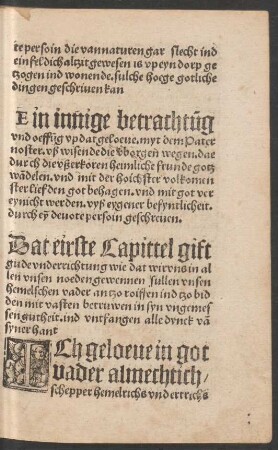 te persoin die van naturen gar slecht ind
einfeldich altzit gewesen is vp eyn dorp ge
tzogen ind wonende. sulche hoege gotliche
dingen geschriuen kan
Ein innige betrachtūg
vnd oeffūg vp dat geloeue. myt dem Pater
noster. vß wisende die vborgen wegen. dae
durch die vßerkoren heimliche frunde gotz
wādelen. vnd mit der hoichster volkomen
ster lieffden got behagen. vnd mit got ver
eynicht werden. vyß eygener besyntlicheit.
durch eȳ deuote persoin geschreuen.
Dat eirste Capittel gift
gude vnderrichtung wie dat wir vns in al
len vnsen noeden gewennen sullen vnsen
hemelschen vader an tzo roiffen ind tzo bid
den mit vasten betruwen in syn vngemes
sen gutheit. ind vntfangen alle dynck vā
syner hant
ICh geloeue in got
vader almechtich/
schepper hemelrichs vnd ertrichs